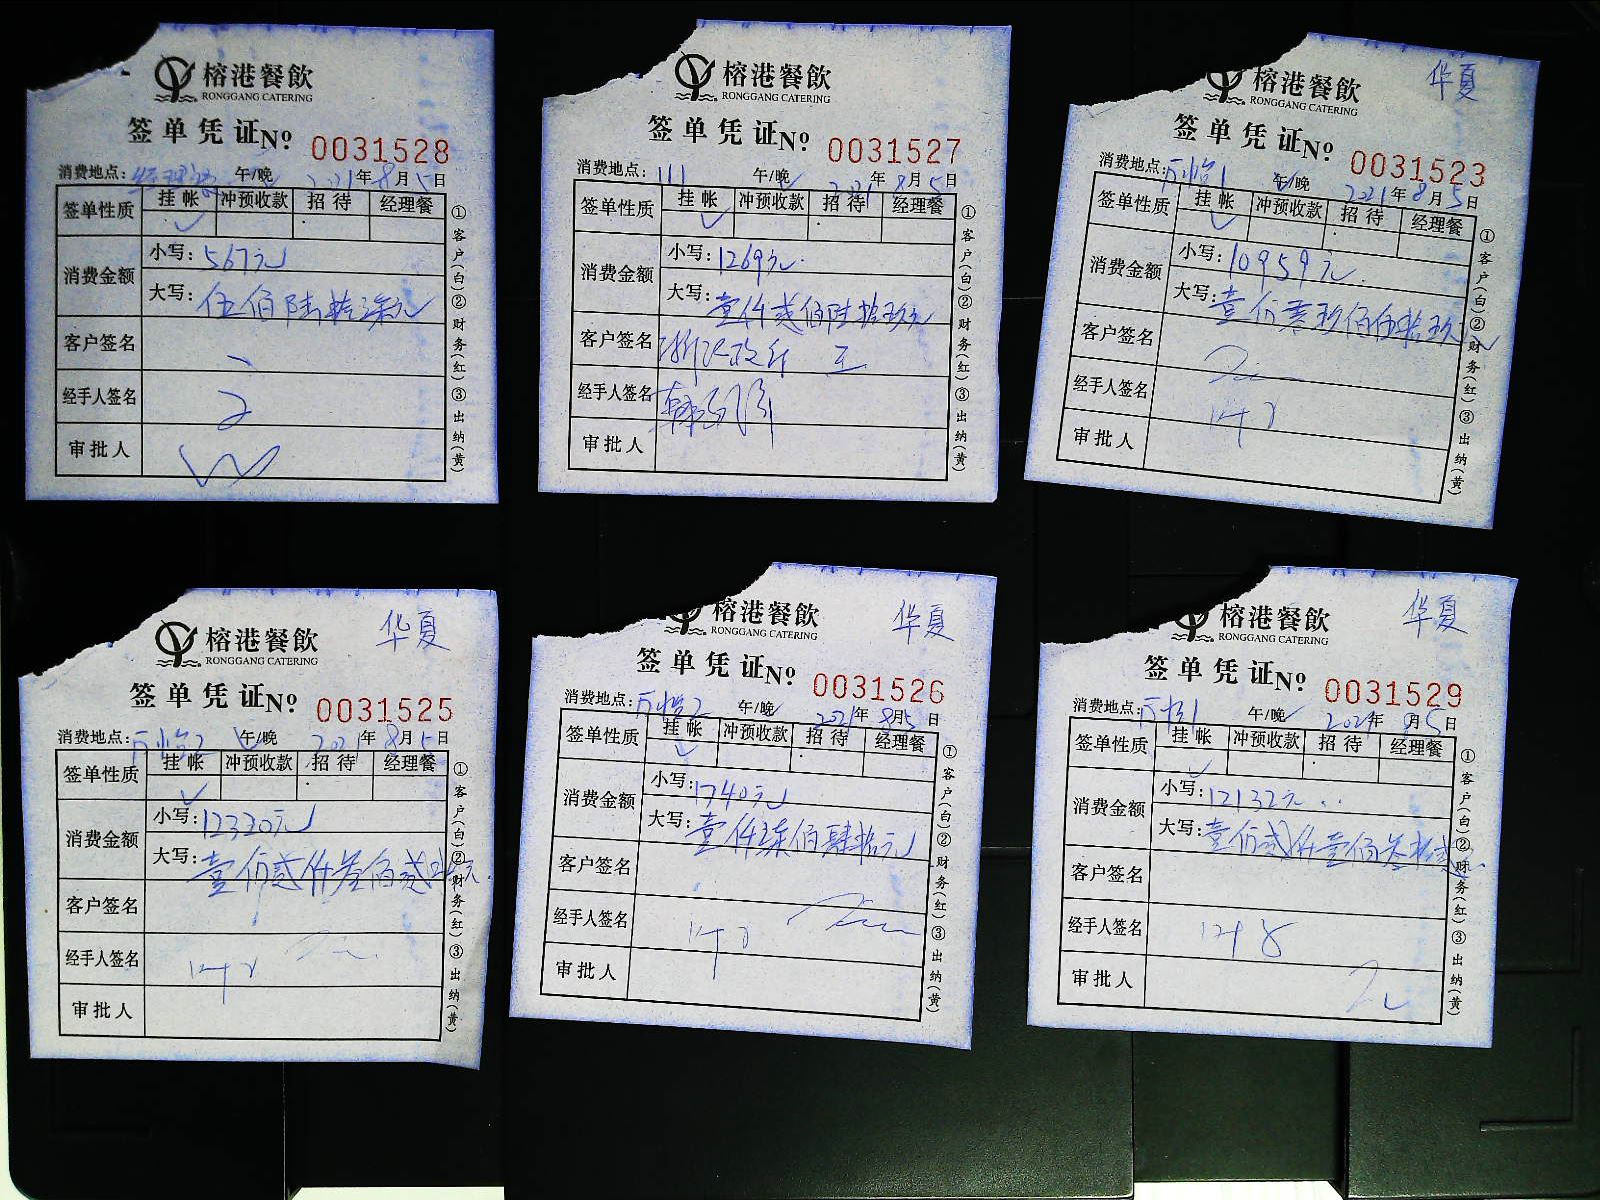 榕港餐飲
RONGGANG CATERING
签单凭证№ 0031528
消费地点: 午/晚 2021年8月5日
签单性质 挂帐 冲预收款 招待 经理餐
✓
消费金额 小写: 567元
大写: 伍佰陆拾柒元
客户签名
经手人签名
审批人
①客户(白)②财务(红)③出纳(黄)
榕港餐飲
RONGGANG CATERING
签单凭证№ 0031527
消费地点: 111 午/晚 2021年8月5日
签单性质 挂帐 冲预收款 招待 经理餐
✓
消费金额 小写: 1269元
大写: 壹仟贰佰陆拾玖元
客户签名
经手人签名
审批人
①客户(白)②财务(红)③出纳(黄)
华夏
榕港餐飲
RONGGANG CATERING
签单凭证№ 0031523
消费地点: 午/晚 2021年8月5日
签单性质 挂帐 冲预收款 招待 经理餐
✓
消费金额 小写: 10959元
大写: 壹万零玖佰伍拾玖元
客户签名
经手人签名
审批人
①客户(白)②财务(红)③出纳(黄)
华夏
榕港餐飲
RONGGANG CATERING
签单凭证№ 0031525
消费地点: 午/晚 2021年8月5日
签单性质 挂帐 冲预收款 招待 经理餐
✓
消费金额 小写: 12320元
大写: 壹万贰仟叁佰贰拾元
客户签名
经手人签名
审批人
①客户(白)②财务(红)③出纳(黄)
华夏
榕港餐飲
RONGGANG CATERING
签单凭证№ 0031526
消费地点: 午/晚 2021年8月5日
签单性质 挂帐 冲预收款 招待 经理餐
✓
消费金额 小写: 1740元
大写: 壹仟柒佰肆拾元
客户签名
经手人签名
审批人
①客户(白)②财务(红)③出纳(黄)
华夏
榕港餐飲
RONGGANG CATERING
签单凭证№ 0031529
消费地点: 午/晚 2021年8月5日
签单性质 挂帐 冲预收款 招待 经理餐
✓
消费金额 小写: 12132元
大写: 壹万贰仟壹佰叁拾贰元
客户签名
经手人签名
审批人
①客户(白)②财务(红)③出纳(黄)